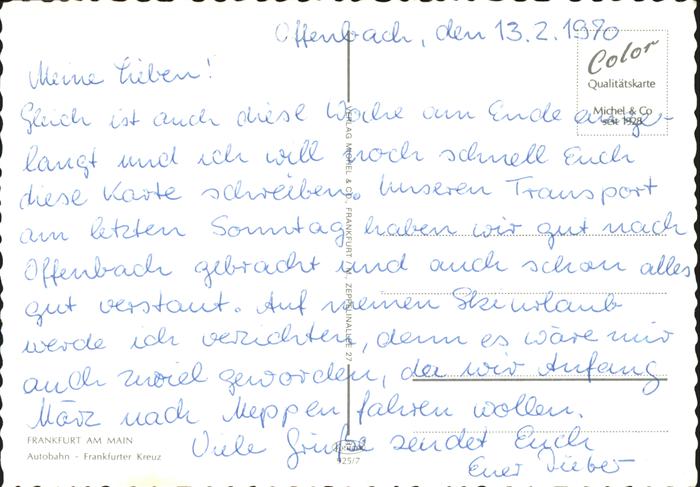 Offenbach, den 13.2.1970
Meine Lieben!
Gleich ist auch diese Woche am Ende ange-
langt und ich will noch schnell Euch
diese Karte schreiben. Unseren Transport
am letzten Sonntag haben wir gut nach
Offenbach gebracht und auch schon alles
gut verstaut. Auf meinen Skiurlaub
werde ich verzichten, denn es wäre mir
auch zuviel geworden, da wir Anfang
März nach Meppen fahren wollen.
Viele Grüße sendet Euch
Euer Dieter
Color
Qualitätskarte
Michel & Co
seit 1928
VERLAG MICHEL & CO., FRANKFURT / M., ZEPPELINALLEE 27
FRANKFURT AM MAIN
Autobahn - Frankfurter Kreuz
425/7